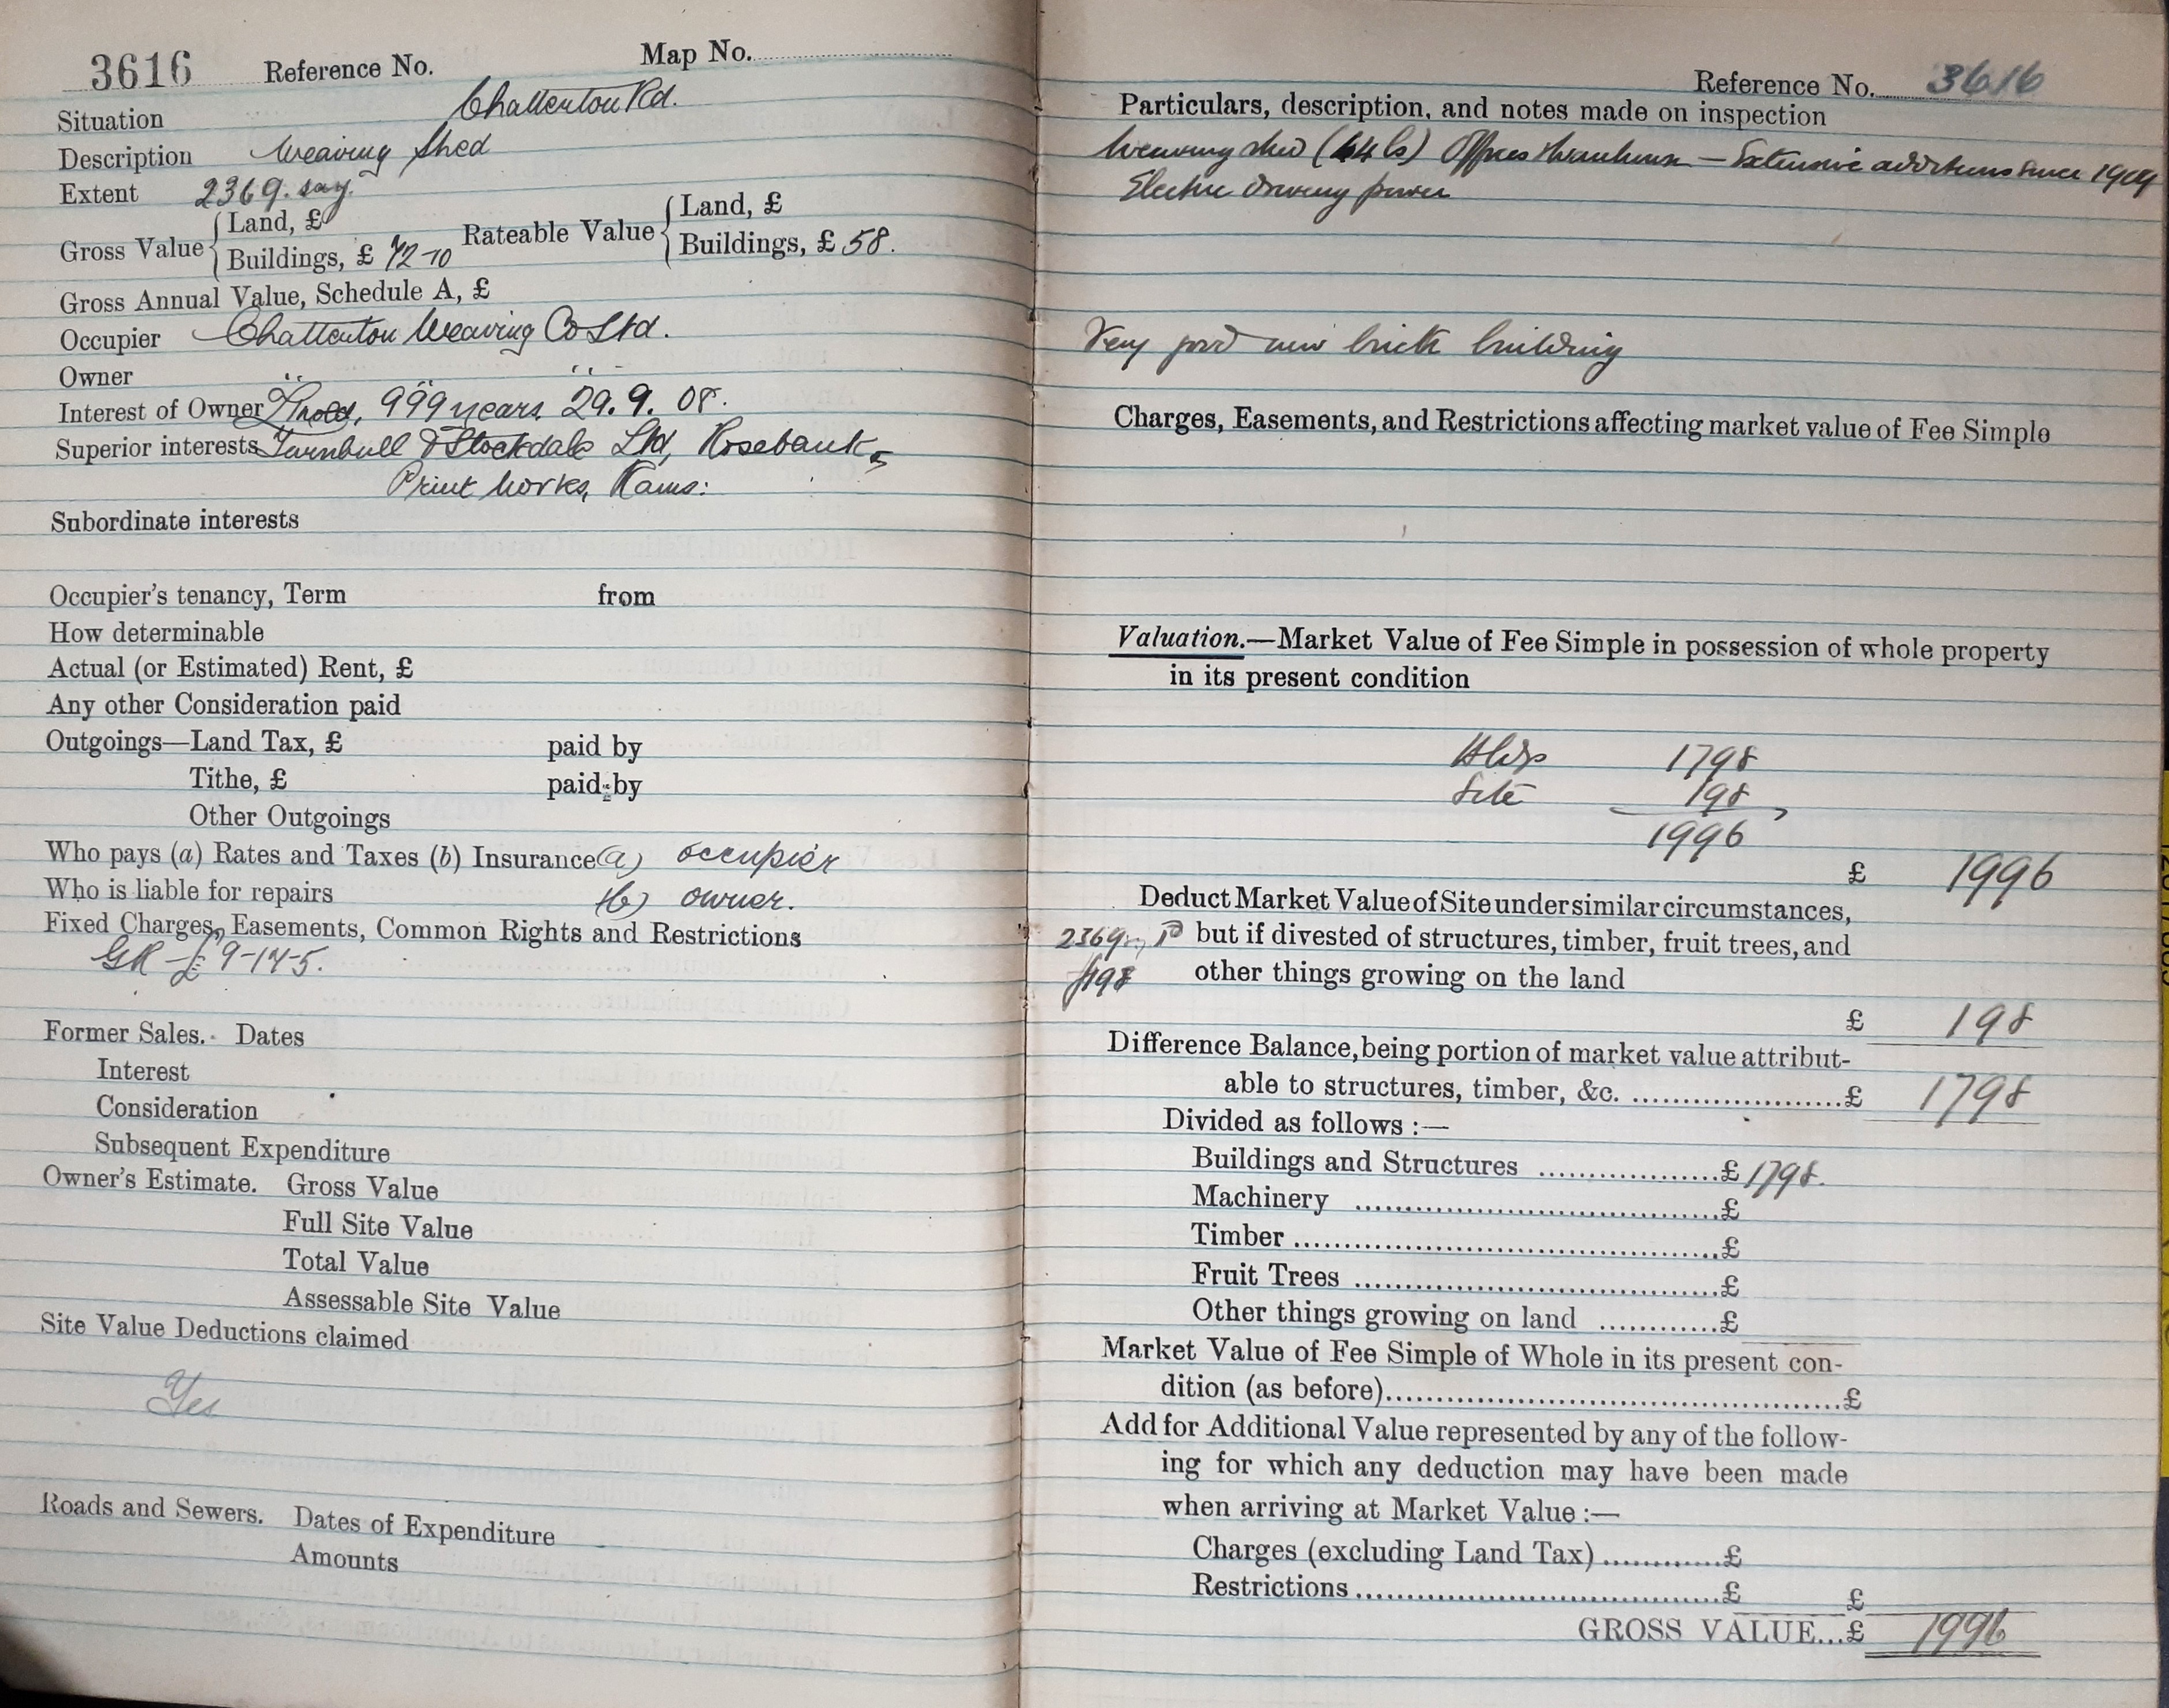 3616 Reference No. Map No.
Situation Chatterton Rd.
Description Weaving Shed
Extent 2369. say.
Gross Value { Land, £
Buildings, £ 72-10
Rateable Value { Land, £
Buildings, £ 58.
Gross Annual Value, Schedule A, £
Occupier Chatterton Weaving Co Ltd.
Owner " " "
Interest of Owner 999 years, 29. 9. 08.
Superior interests Turnbull & Stockdale Ltd, Rosebank
Print Works, Rams:
Subordinate interests
Occupier's tenancy, Term from
How determinable
Actual (or Estimated) Rent, £
Any other Consideration paid
Outgoings—Land Tax, £ paid by
Tithe, £ paid by
Other Outgoings
Who pays (a) Rates and Taxes (b) Insurance (a) occupier
Who is liable for repairs (b) owner.
Fixed Charges, Easements, Common Rights and Restrictions
GR — £9-14-5.
Former Sales. Dates
Interest
Consideration
Subsequent Expenditure
Owner's Estimate. Gross Value
Full Site Value
Total Value
Assessable Site Value
Site Value Deductions claimed
Yes
Roads and Sewers. Dates of Expenditure
Amounts
Reference No. 3616
Particulars, description, and notes made on inspection
Weaving shed (44 ls) Offices & warehouse — Extensive additions since 1909
Electric driving power
Very good new brick building
Charges, Easements, and Restrictions affecting market value of Fee Simple
Valuation.—Market Value of Fee Simple in possession of whole property
in its present condition
Bldgs 1798
Site 198
1996
£ 1996
Deduct Market Value of Site under similar circumstances,
2369 but if divested of structures, timber, fruit trees, and
£198 other things growing on the land
£ 198
Difference Balance, being portion of market value attribut-
able to structures, timber, &c. ......................£ 1798
Divided as follows :—
Buildings and Structures ..................£ 1798.
Machinery .......................................£
Timber .............................................£
Fruit Trees .......................................£
Other things growing on land ............£
Market Value of Fee Simple of Whole in its present con-
dition (as before)................................................£
Add for Additional Value represented by any of the follow-
ing for which any deduction may have been made
when arriving at Market Value :—
Charges (excluding Land Tax) ............£
Restrictions ......................................£ £
GROSS VALUE...£ 1996